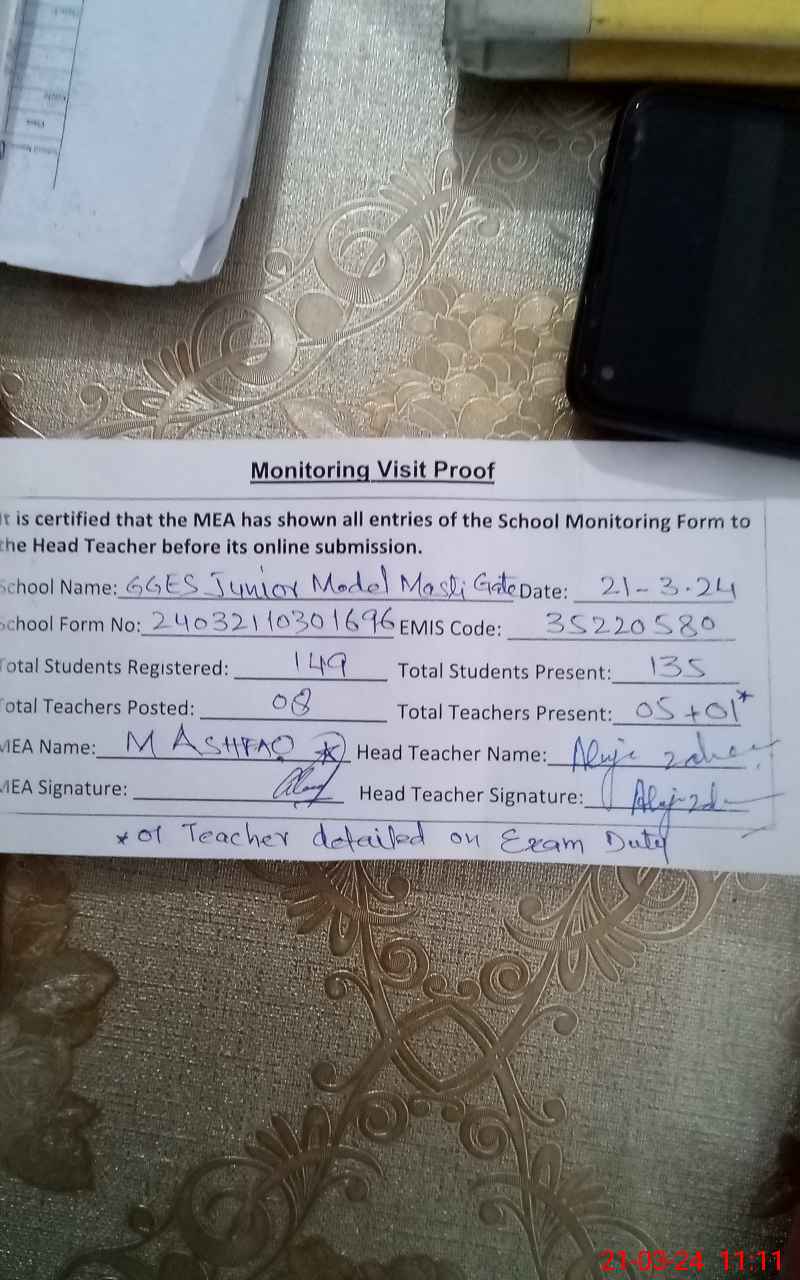 Monitoring Visit Proof
It is certified that the MEA has shown all entries of the School Monitoring Form to
the Head Teacher before its online submission.
School Name: GGES Junior Model Masti Gate Date: 21-3.24
School Form No: 24032110301696 EMIS Code: 35220580
Total Students Registered: 149 Total Students Present: 135
Total Teachers Posted: 08 Total Teachers Present: 05+01*
MEA Name: M ASHFAQ Head Teacher Name:
MEA Signature: Head Teacher Signature:
* 01 Teacher detailed on Exam Duty
21-03-24 11:11